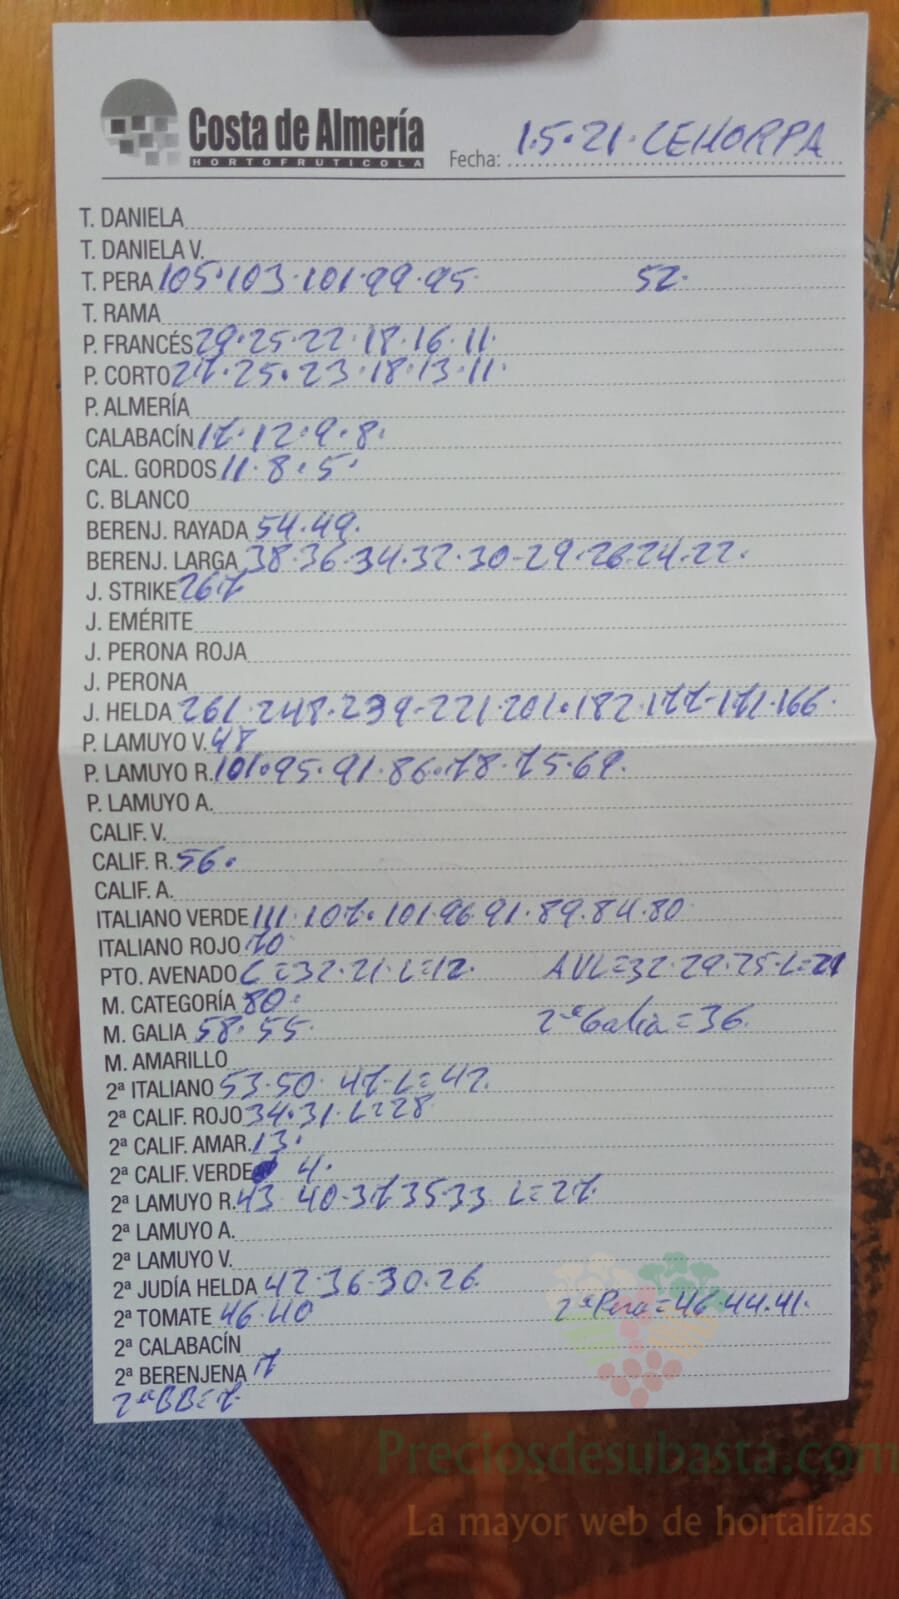 Costa de Almería
HORTOFRUTICOLA
Fecha: 1.5.21. CEHORPA
T. DANIELA
T. DANIELA V.
T. PERA 105.103.101.99.95. 52.
T. RAMA
P. FRANCÉS 29.25.22.18.16.11.
P. CORTO 27.25.23.18.13.11.
P. ALMERÍA
CALABACÍN 17.12.9.8.
CAL. GORDOS 11.8.5.
C. BLANCO
BERENJ. RAYADA 54.49.
BERENJ. LARGA 38.36.34.32.30-29.26.24.22.
J. STRIKE 267
J. EMÉRITE
J. PERONA ROJA
J. PERONA
J. HELDA 261.248.239-221.201.182.177-171.166.
P. LAMUYO V. 48
P. LAMUYO R. 101.95.91.86.78.75.69.
P. LAMUYO A.
CALIF. V.
CALIF. R. 56.
CALIF. A.
ITALIANO VERDE 111.107.101.96.91.89.84.80
ITALIANO ROJO 70
PTO. AVENADO C=32.21.L=12. AVL=32.29.25.L=21
M. CATEGORÍA 80.
M. GALIA 58.55. 2ª Galia=36.
M. AMARILLO
2ª ITALIANO 53.50.47-L=42.
2ª CALIF. ROJO 34.31.L=28
2ª CALIF. AMAR. 13.
2ª CALIF. VERDE 4.
2ª LAMUYO R. 43 40-37.35-33 L=27.
2ª LAMUYO A.
2ª LAMUYO V.
2ª JUDÍA HELDA 42.36-30.26.
2ª TOMATE 46.40 2ª Pera=46.44.41.
2ª CALABACÍN
2ª BERENJENA 17
2ª BB=7
Preciosdesubasta.com
La mayor web de hortalizas